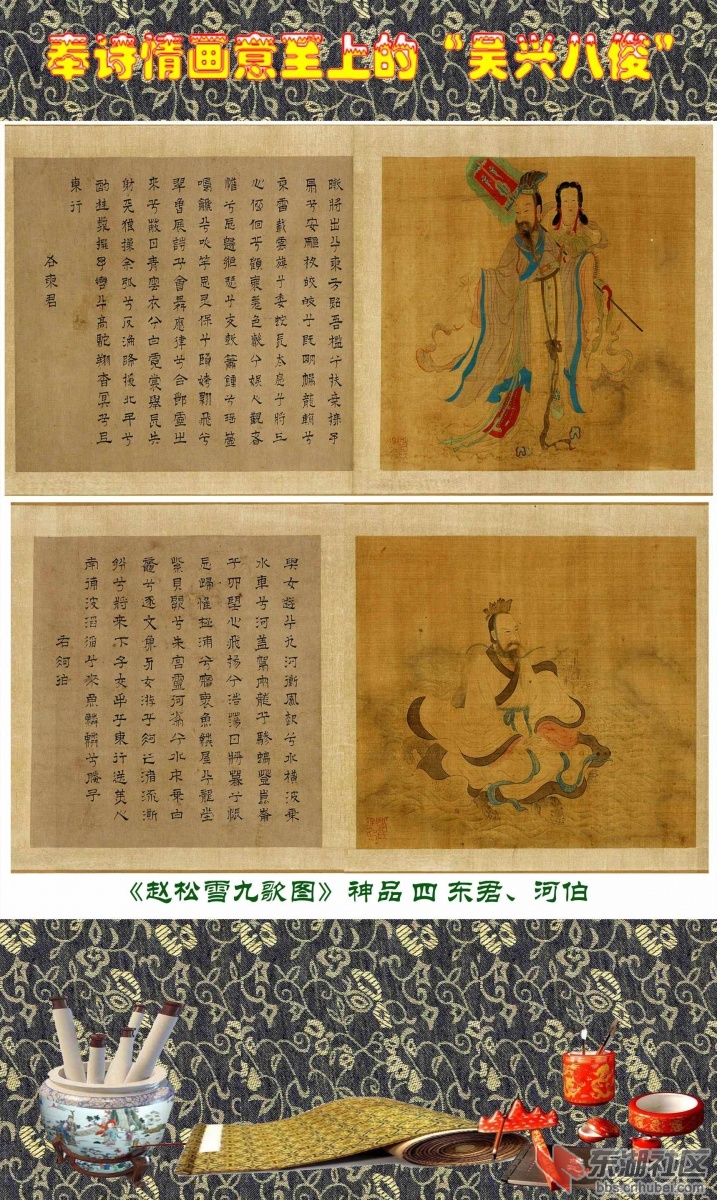 奉诗情画意至上的“吴兴八俊”
暾將出兮東方照吾檻兮扶桑撫予
馬兮安驅夜皎皎兮既明駕龍輈兮
乘雷載雲旗兮委蛇長太息兮將上
心低佪兮顧懷羌色聲兮娛人觀者
憺兮忘歸緪瑟兮交鼓簫鍾兮瑤簴
鳴鷈兮吹竽思靈保兮賢姱翾飛兮
翠曾展詩兮會舞應律兮合節靈之
來兮蔽日青雲衣兮白霓裳舉長矢
射天狼操余弧兮反淪降援北斗兮
酌桂漿撰予轡兮高駝翔杳冥兮以
東行
右東君
與女遊兮九河衝風起兮水橫波乘
水車兮河蓋駕兩龍兮驂螭登崑崙
兮四望心飛揚兮浩蕩日將暮兮悵
忘歸惟極浦兮寤懷魚鱗屋兮龍堂
紫貝闕兮朱宮靈何為兮水中乘白
黿兮逐文魚與女遊兮河之渚流澌
紛兮將來下子交手兮東行送美人
南浦波滔滔兮來魚鱗鱗兮媵予
右河伯
《赵松雪九歌图》神品 四 东君、河伯
东湖社区
bbs.cnhubei.com